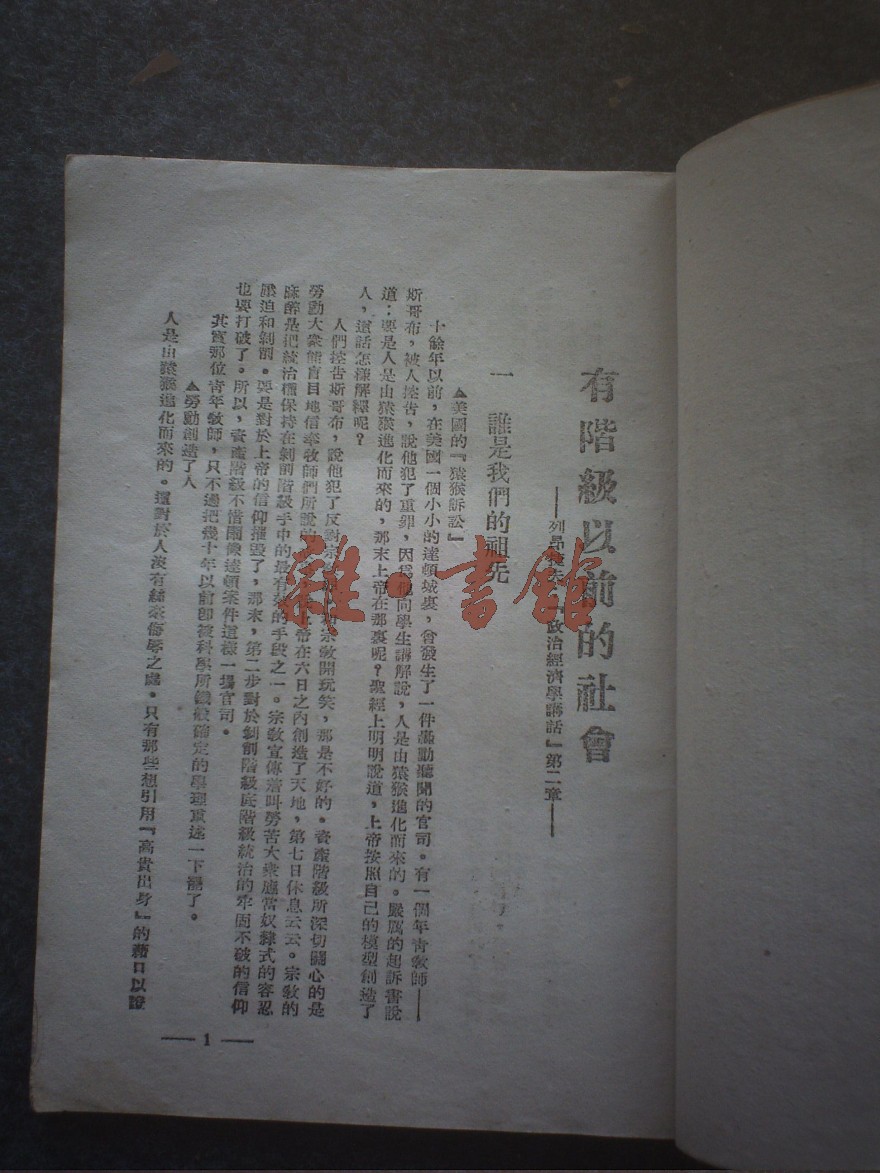 有階級以前的社會
——列昂捷夫：『政治經濟學講話』第二章——
一　誰是我們的祖先
▲美國的『猿猴訴訟』
十餘年以前，在美國一個小小的達頓城裏，曾發生了一件轟動聽聞的官司。有一個年青教師——
斯哥布，被人控告，說他犯了重罪，因爲他向學生講解說，人是由猿猴進化而來的。嚴厲的起訴書說
道：要是人是由猿猴進化而來的，那末上帝在那裏呢？聖經上明明說道，上帝按照自己的模型創造了
人，這話怎樣解釋呢？
人們控告斯哥布，說他犯了反對宗 宗敎開玩笑，那是不好的。資產階級所深切關心的是
勞動大衆能盲目地信奉牧師們所說的 上帝在六日之內創造了天地，第七日休息云云。宗敎的
麻醉是把統治權保持在剝削階級手中的最有效的手段之一。宗敎宣傳着叫勞苦大衆應當奴隸式的容忍
壓迫和剝削。要是對於上帝的信仰摧毀了，那末，第二步對於剝削階級底階級統治的牢固不破的信仰
也要打破了。所以，資產階級不惜鬧像達頓案件這樣一場官司。
其實那位青年敎師，只不過把幾十年以前卽被科學所 確定的學理重述一下罷了。
▲勞動創造了人
人是由猿猴進化而來的。這對於人沒有絲毫侮辱之處。只有那些想引用『高貴出身』的藉口以證
—— 1 ——
雜·書館